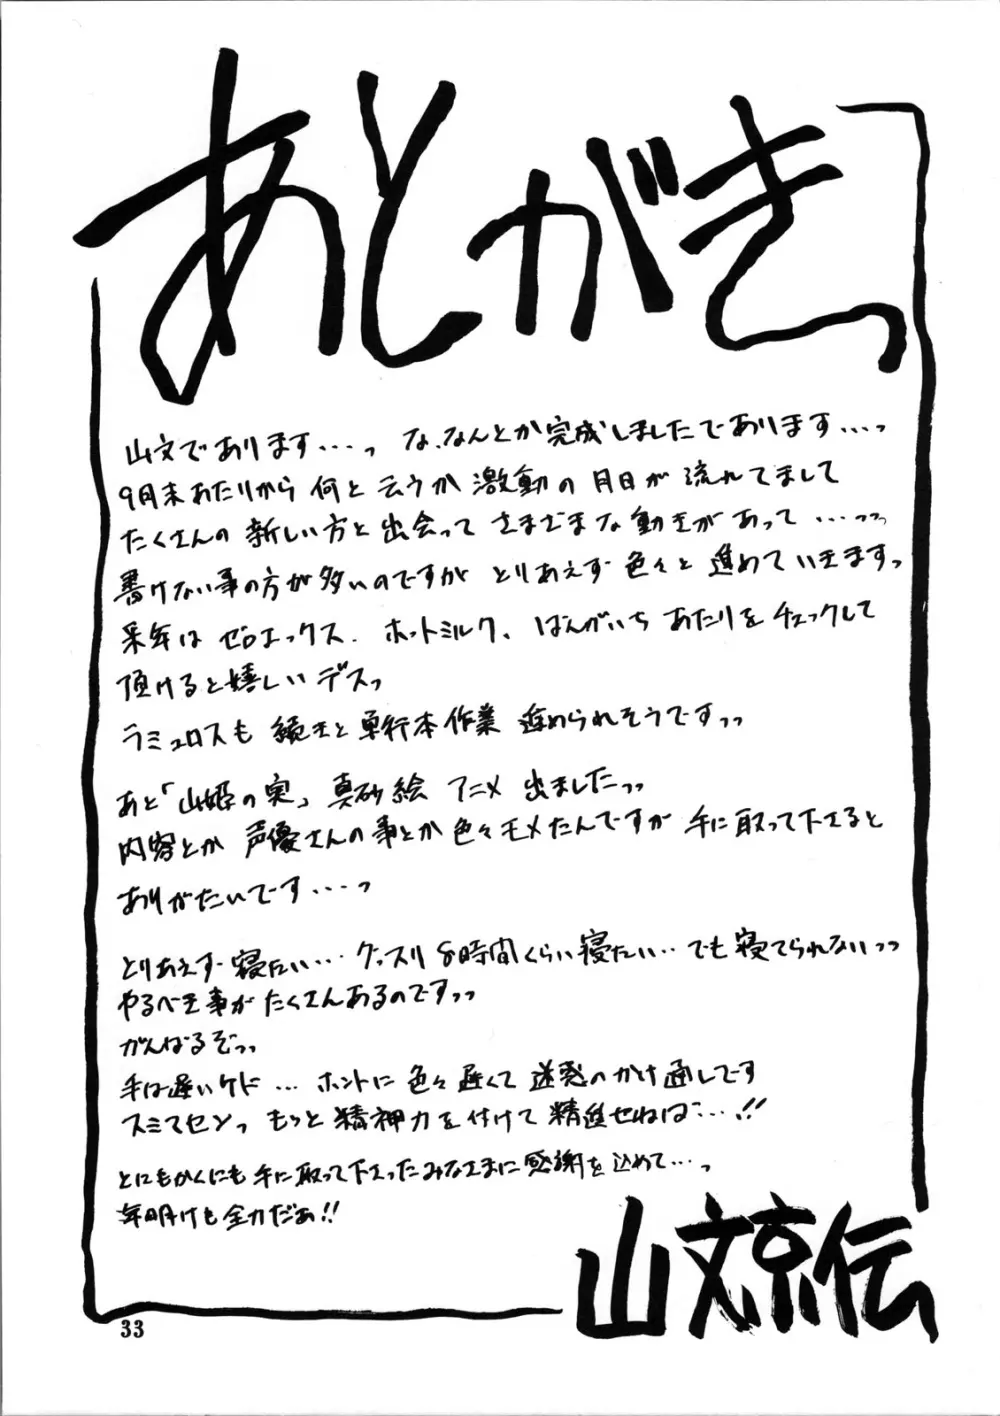 あとがきっ
山文であります・・・っ な、なんとか完成しましたであります・・・っ
9月末あたりから 何と云うか 激動の月日が 流れてまして
たくさんの新しい方と出会って さまざまな動きがあって ・・・っっ
書けない事の方が多いのですが とりあえず色々と進めていきますっ
来年は ゼロエックス、ホットミルク、ばんがいち あたりをチェックして
頂けると嬉しいデスっ
ラミュロスも 続きと単行本作業 進められそうですっっ
あと「山姫の実」真砂絵 アニメ 出ましたっっ
内容とか 声優さんの事とか色々モメたんですが 手に取って下さると
ありがたいです・・・っ
とりあえず寝たい・・・グッスリ8時間くらい寝たい・・でも寝てられないっっ
やるべき事がたくさんあるのですっっ
がんばるぞっっ
手は遅いケド ・・・ ホントに色々遅くて迷惑のかけ通しです
スミマセンっ もっと精神力を付けて精進せねば・・・!!
とにもかくにも手に取って下さったみなさまに感謝を込めて・・・っ
年明けも全力だぁ!!
山文京伝
33